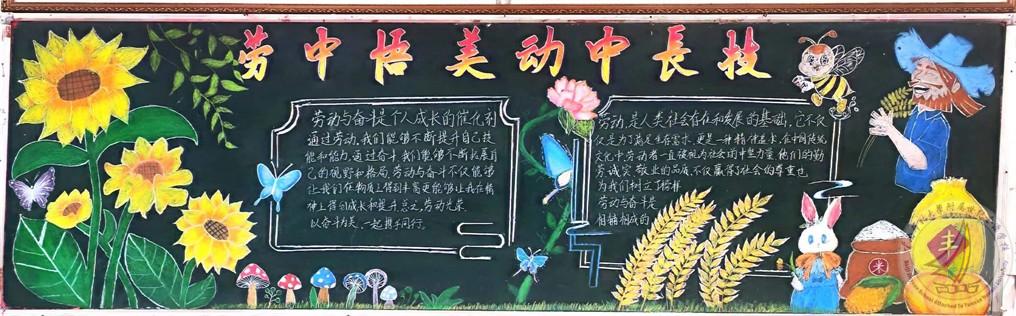 劳中悟美动中長技
劳动与奋斗是个人成长的催化剂
通过劳动,我们能够不断提升自己技
能和能力,通过奋斗,我们能够不断拓展自
己的视野和格局,劳动与奋斗不仅能够
让我们在物质上得到丰富更能够让我在精
神上得到成长和提升总之,劳动光荣
以奋斗为美,一起携手同行。
劳动是人类社会存在和发展的基础,它不仅
仅是为了满足生存需求,更是一种精神追求,在中国传统
文化中,劳动者一直被视为社会的中坚力量他们的勤
劳,诚实,敬业的品质,不仅赢得了社会的尊重也
为我们树立了榜样
劳动与奋斗是
相辅相成的
米
丰